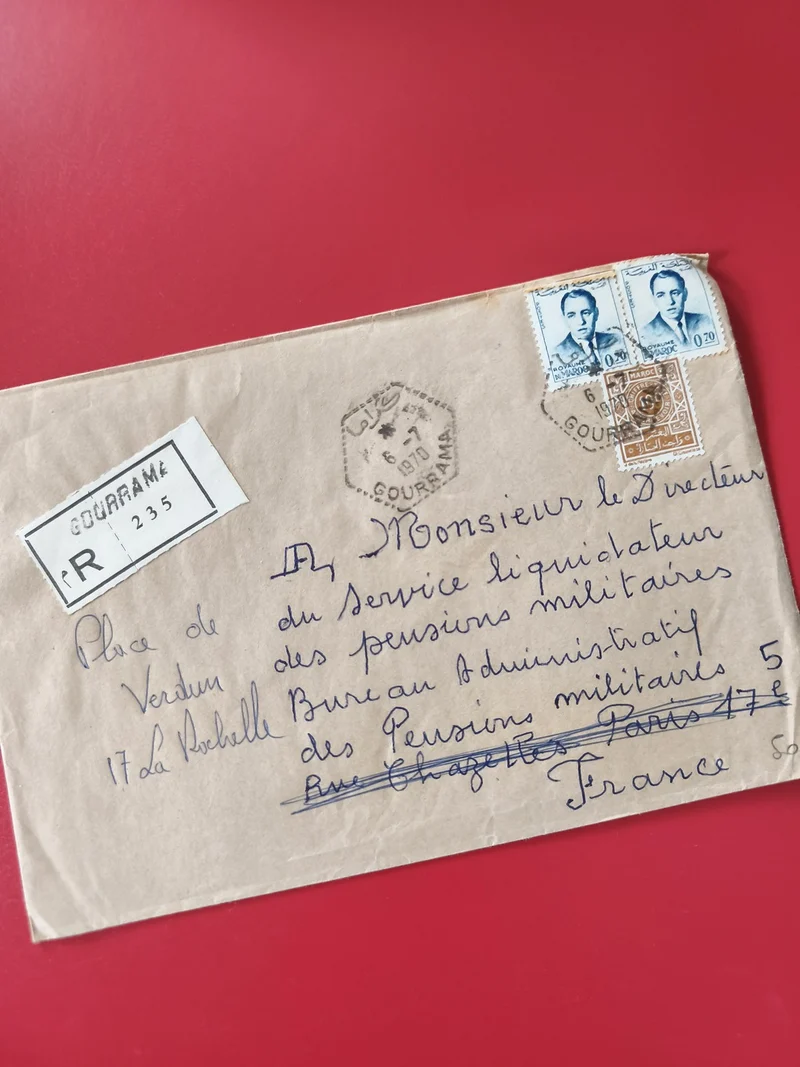 المملكة المغربية
POSTES
ROYAUME
DU MAROC
0,20
المملكة المغربية
POSTES
ROYAUME
DU MAROC
0,20
MAROC
6 -7
1970
GOURRAMA
كرامة
6 -7
1970
GOURRAMA
GOURRAMA
R
235
A, Monsieur le Directeur
du Service liquidateur
des pensions militaires
Bureau Administratif
des Pensions militaires 5
Rue Chazelles Paris 17e
France
Place de
Verdun
17 La Rochelle
50